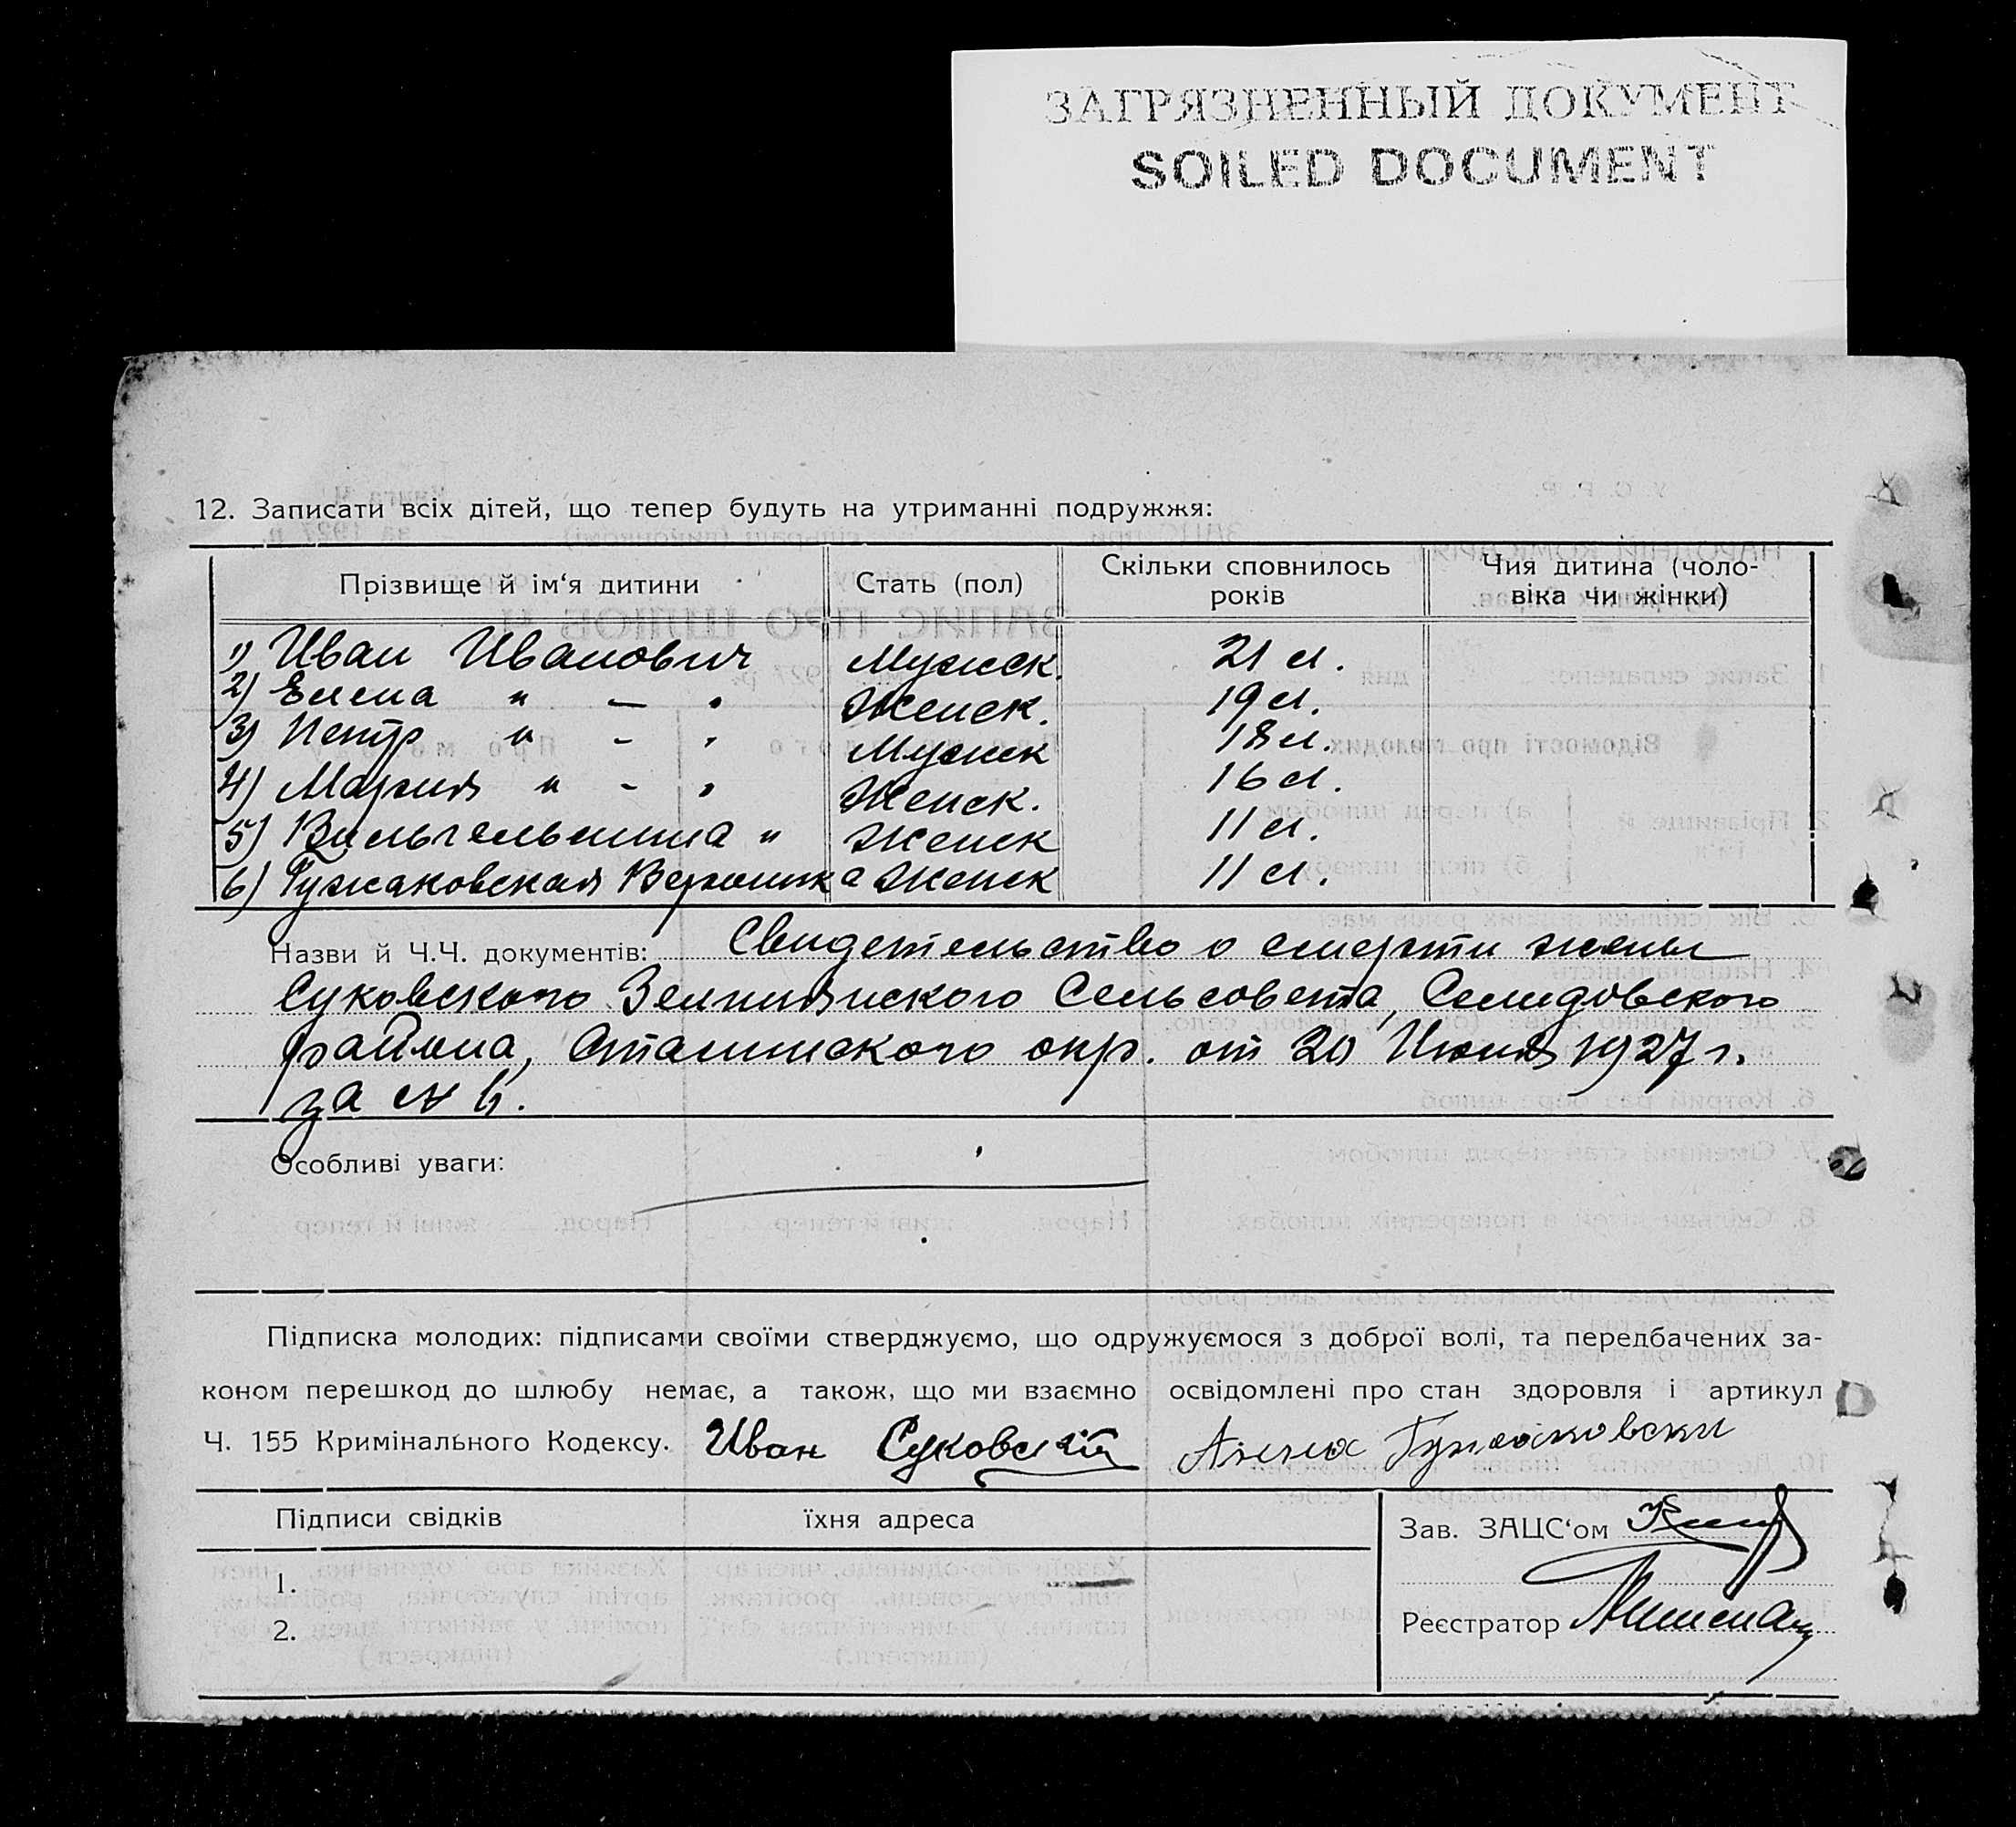 ЗАГРЯЗНЕННЫЙ ДОКУМЕНТ
SOILED DOCUMENT
12. Записати всіх дітей, що тепер будуть на утриманні подружжя:
Прізвище й ім‘я дитини Стать (пол) Скільки сповнилось років Чия дитина (чоловіка чи жінки)
1) Иван Иванович Мужск. 21 л.
2) Елена " — " Женск. 19 л.
3) Петр " - " Мужск 18 л.
4) Мария " - " Женск. 16 л.
5) Вильгельмина " Женск 11 л.
6) Гужаковская Вероника Женск 11 л.
Назви й Ч.Ч. документів: Свидетельство о смерти жены
Суковского Сельсовета, Селидовского
района, Сталинского окр. от 20 1927 г.
за № 6.
Особливі уваги:
Підписка молодих: підписами своїми стверджуємо, що одружуємося з доброї волі, та передбачених за-
коном перешкод до шлюбу немає, а також, що ми взаємно освідомлені про стан здоровля і артикул
Ч. 155 Кримінального Кодексу. Иван Суковскій
Підписи свідків їхня адреса
Зав. ЗАЦС‘ом
1.
2.
Реєстратор